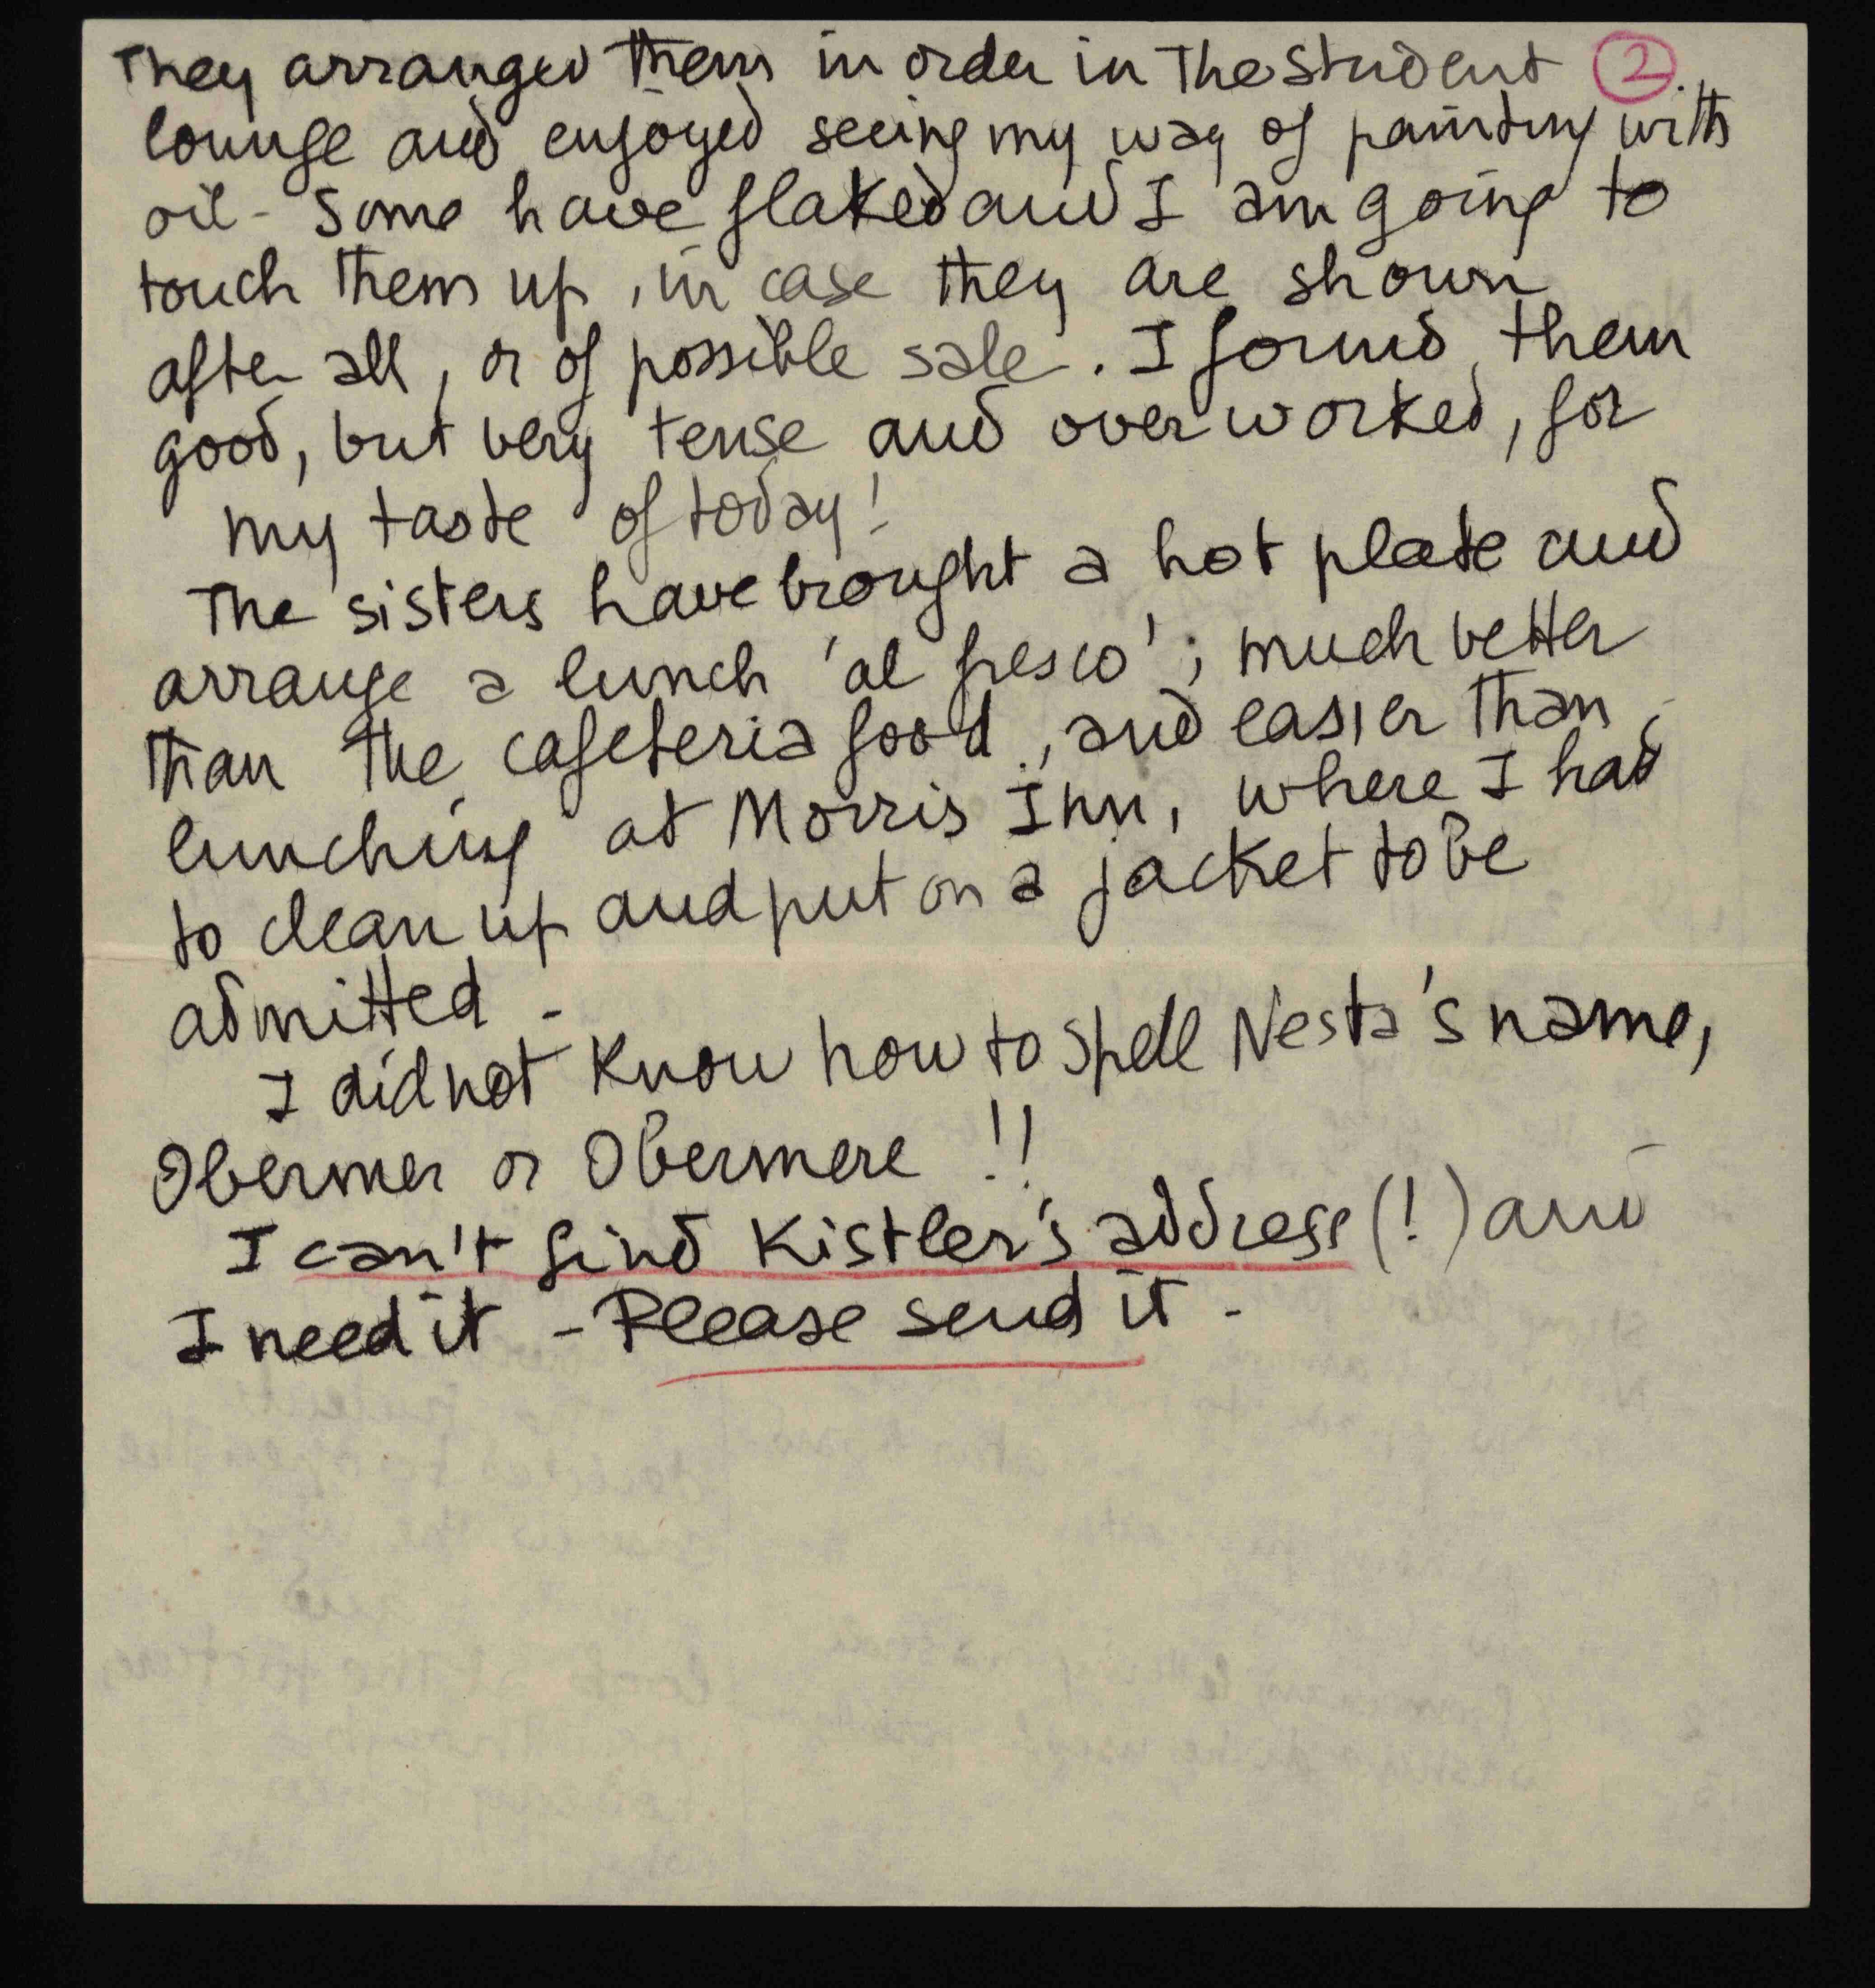 They arranged them in order in the student 2.
lounge and enjoyed seeing my way of painting with
oil - Some have flaked and I am going to
touch them up, in case they are shown
after all, or of possible sale. I found them
good, but very tense and overworked, for
my taste of today!
The sisters have brought a hot plate and
arrange a lunch 'al fresco'; much better
than the cafeteria food, and easier than
lunching at Morris Inn, where I had
to clean up and put on a jacket to be
admitted -
I did not know how to spell Nesta's name,
Obermer or Obermere !!
I can't find Kistler's address (!) and
I need it - Please send it -